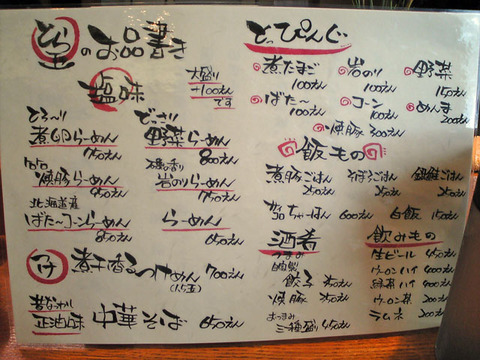 のお品書き
塩味
大盛り
+100えん
です
とろ〜り
煮卵らーめん
750えん
どっさり
野菜らーめん
800えん
焼豚らーめん
950えん
磯の香り
岩のりらーめん
750えん
北海道産
ばた〜コーンらーめん
850えん
らーめん
650えん
つけ
煮干香るつけめん 700えん
昔ながら
正油味 中華そば 650えん
とっぴんぐ
煮たまご
100えん
岩のり
100えん
野菜
150えん
ばた〜
100えん
コーン
100えん
めんま
200えん
焼豚 300えん
飯もの
煮豚ごはん
250えん
そぼろごはん
250えん
250えん
ちゃごはん 600えん
白飯 150えん
酒肴
つまみ
自家製
餃子 350えん
焼豚 350えん
おつまみ
三種盛り 450えん
飲みもの
生ビール 450えん
ウーロンハイ 400えん
緑茶ハイ 400えん
ウーロン茶 200えん
ラムネ 200えん